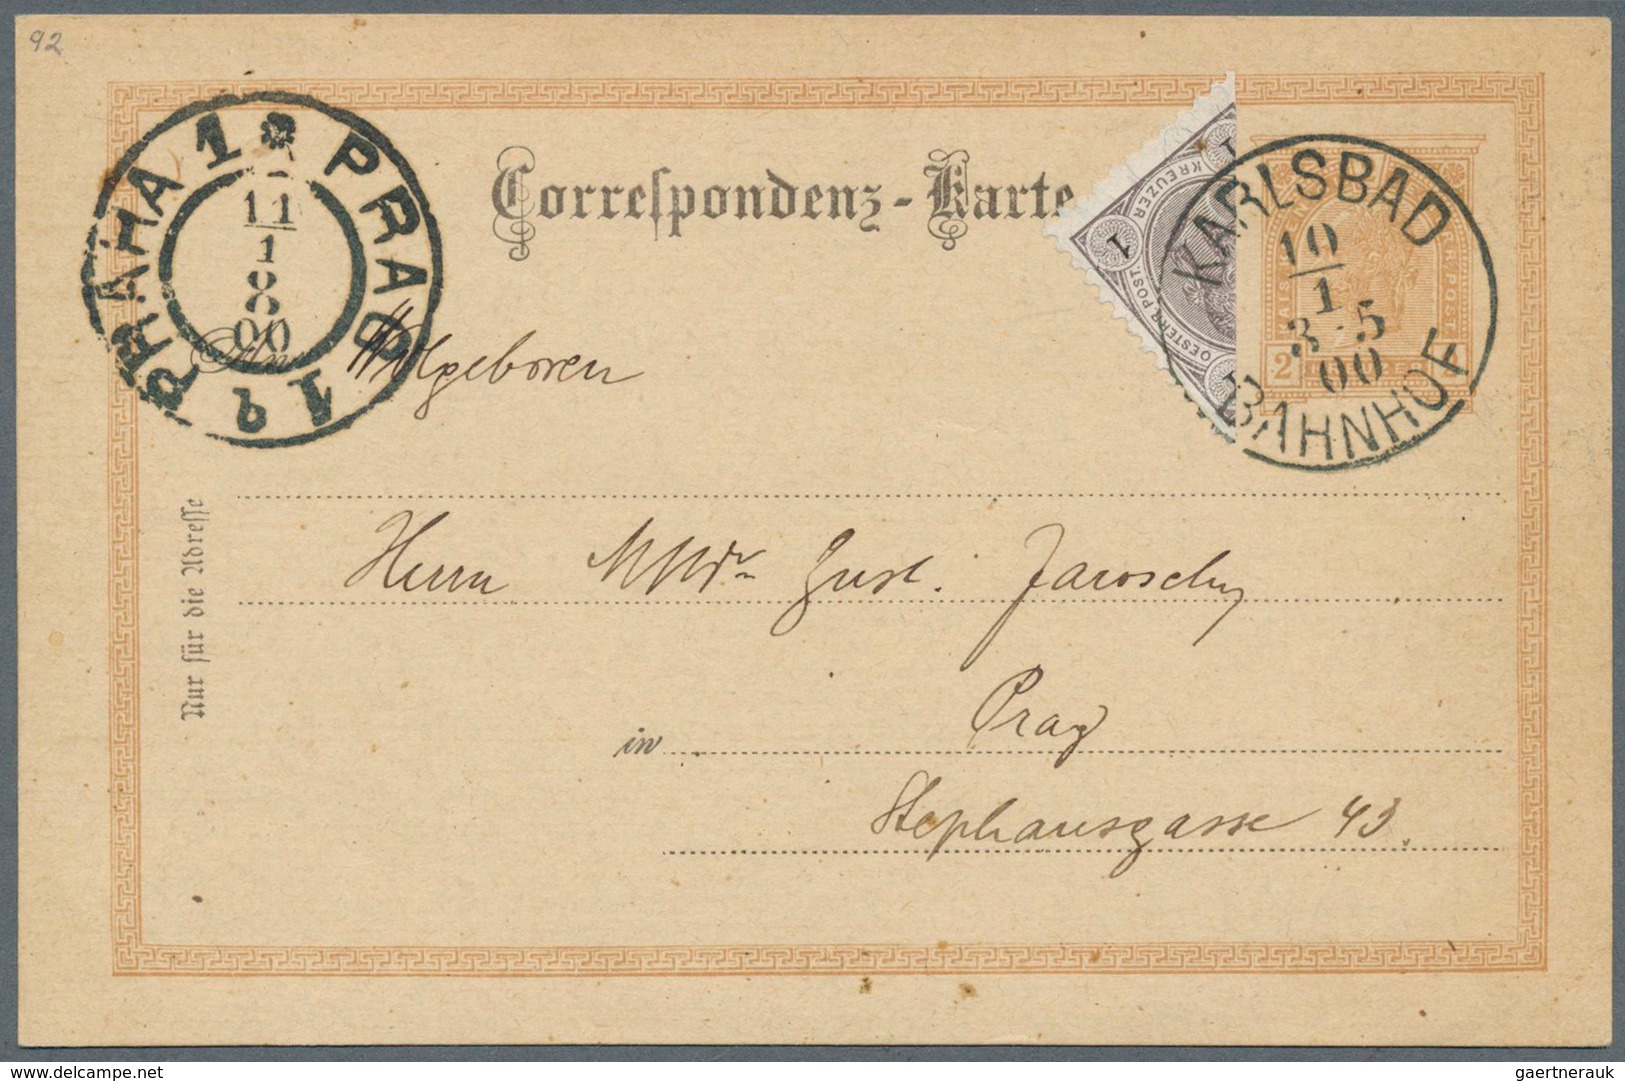 92
PRAHA 1 * PRAG 1 b
11
1
8
00
Correspondenz-Karte
1
KREUZER
1
OESTERR. POST.
KARLSBAD
10
1
3-5
00
BAHNHOF
2
An Wolgeboren
Herrn Gust. Jaroschy
in Prag
Stephansgasse 43.
Nur für die Adresse
www.delcampe.net
gaertnerauk